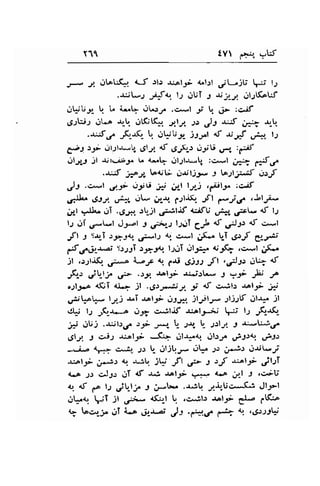 کتاب پنجم ۴۷۱ ۲۶۹
را تنها تازمانی ادامه خواهند داد که بیگناهان بر سر
گناهکاران بریزند و آنان را به‌کیفر رسانند.
گفت: حق با تو است. مردمان جامعهٔ ما با یونانیان
باید چنین کنند ولی در برابر بیگانگان باید همان رفتاری
را پیش گیرند که امروز یونانیان با یکدیگر می‌کنند.
گفتم: پس قانون دیگری که برای پاسداران خود وضع
می‌کنیم چنین است: پاسداران جامعه ما موظف‌اند از ویران
کردن کشتزارها و سوزاندن خانه‌ها پرهیز کنند.
گفت: موافقم، زیرا این نیز قانون خوبی است. ولی
سقراط، می‌ترسم اگر بگذارم بدین سان پیش بروی مطلبی
را که ساعتی پیش ناگفته گذاشتی ازیاد ببری. آن مطلب این
است که دولتی که طرح آن‌را ریختی و اصول اساسی آن را
تشریح کردی آیا ممکن است به راستی به‌وجود آید؟ و اگر
ممکن است، چگونه میتوان آن‌را به‌وجود آورد؟ تصدیق‌می‌کنم
که چنان دولتی، اگر روزی قدم به عرصهٔ هستی بگذارد، از
هر نظر خوب و سعادتمند خواهد بود. حتی مزایائی دیگر
نیز خواهد داشت که تو برنشمردی. از جمله آنکه همواره
از میدان کارزار سرافراز بیرون خواهد آمد زیرا سپاهیانش
یکدیگر را تنها نخواهند گذاشت چون همدیگر را نیک
می‌شناسند و برادر یا پدر یا پسر خود می‌دانند. زنان نیز
دوش به‌دوش مردان به‌میدان جنگ خواهند رفت و برای
ترساندن دشمن در میان سربازان یا در پشت جبهه صف‌
آرائی خواهند کرد و حتی اگر نیاز باشد به دشمن خواهند
تاخت، و این همه سبب خواهد شد که آن دولت در همه
احوال شکست‌ناپذیر باشد. محاسن و مزایائی را هم که به
هنگام صلح خواهد داشت، با اینکه سخنی از آنها به‌میان
نیاوردی، به چشم می‌بینم. ولی تصدیق همهٔ آن مزیت‌ها چه